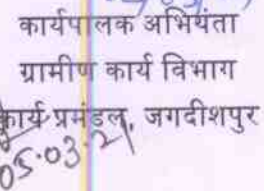 कार्यपालक अभियंता
ग्रामीण कार्य विभाग
कार्य प्रमंडल, जगदीशपुर
05.03.21